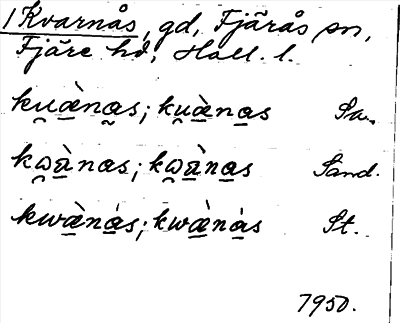 1 Kvarnås, gd, Fjärås sn,
Fjäre hd, Hall. l.
ku̯æ̀nas; ku̯æ̀nas Sa.
kω̯ànas; kω̯ànas Sand.
kwæ̀nás; kwæ̀nàs St.
7950.